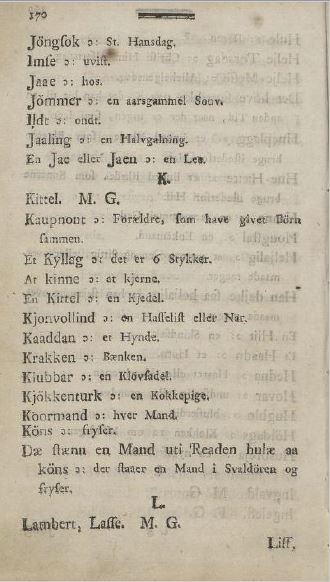 170
Jöngsok ɔ: St. Hansdag.
Imse ɔ: uvist.
Jaae ɔ: hos.
Jömmer ɔ: en aarsgammel Souv.
Ildt ɔ: ondt.
Jaaling ɔ: en Halvgalning.
En Jae eller Jaen ɔ: en Lea.
K.
Kittel. M. G.
Kaupnont ɔ: Forældre, som have givet Börn
sammen.
Et Kyllag ɔ: det er 6 Stykker.
At kinne ɔ: at kjerne.
En Kittel ɔ: en Kjedel.
Kjonvollind ɔ: en Hasselist eller Nar.
Kaaddan ɔ: et Hynde.
Krakken ɔ: Bænken.
Klubbar ɔ: en Klövsadel.
Kjökkenturk ɔ: en Kokkepige.
Koormand ɔ: hver Mand.
Köns ɔ: fryser.
Dæ stænn en Mand uti Readen hulæ aa
köns ɔ: der staaer en Mand i Svaldören og
fryser.
L.
Lambert, Lasse. M. G.
Liff,